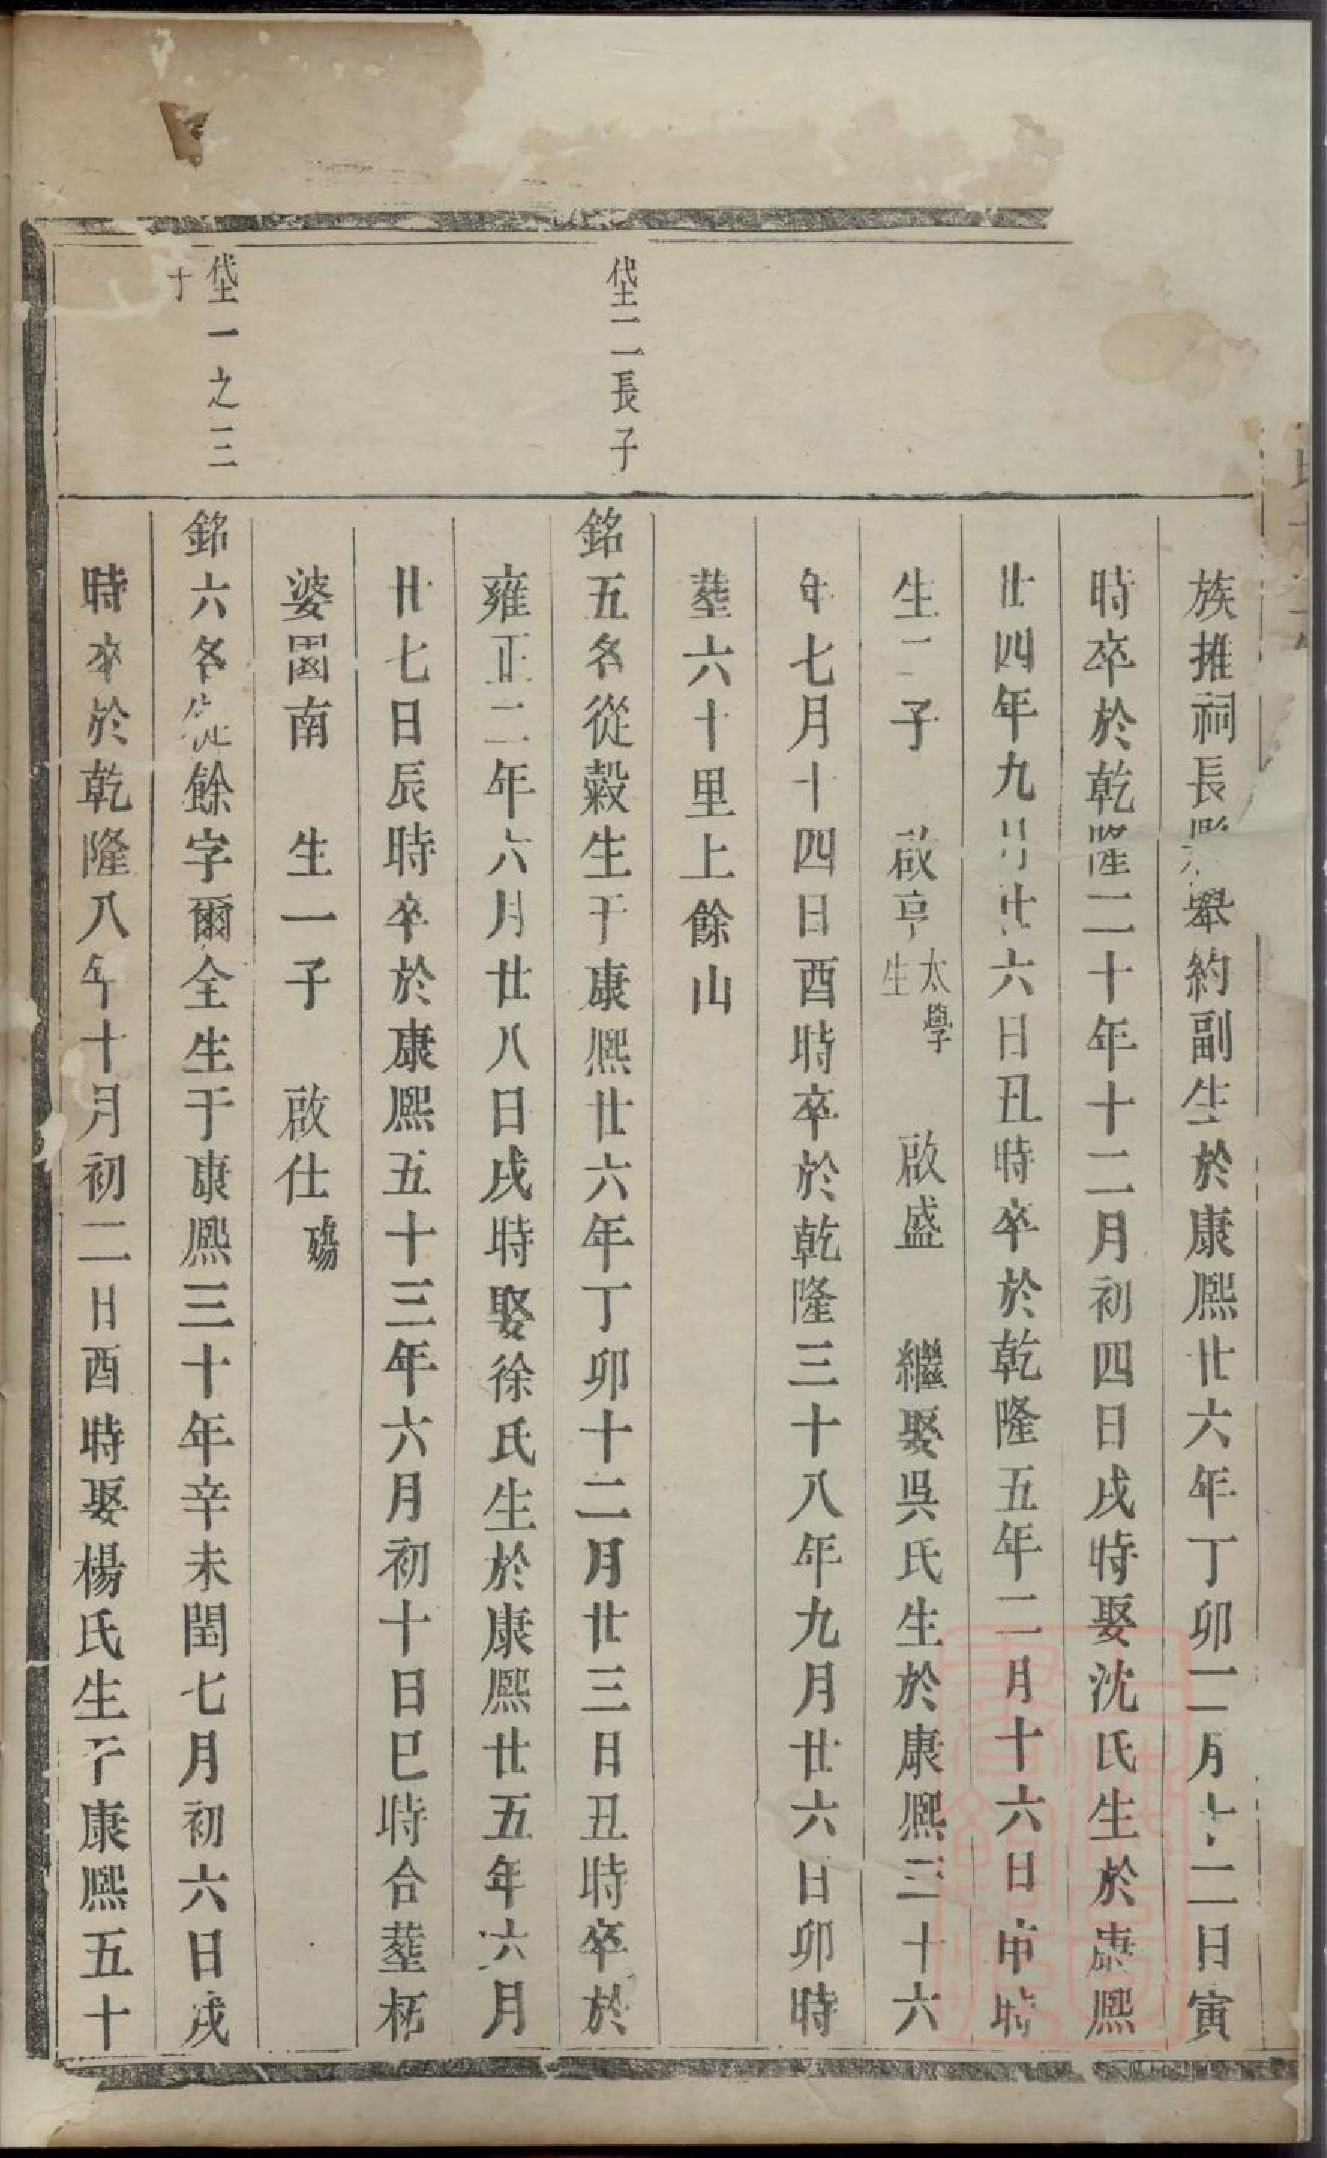 族推祠長縣舉約副生於康熙廿六年丁卯二月十二日寅
時卒於乾隆二十年十二月初四日戌時娶沈氏生於康熙
廿四年九月廿六日丑時卒於乾隆五年二月十六日申時
生二子 啟亨太學生 啟盛 繼娶吳氏生於康熙三十六
年七月十四日酉時卒於乾隆三十八年九月廿六日卯時
塟六十里上餘山
垈二長子
銘五名從穀生于康熙廿六年丁卯十二月廿三日丑時卒於
雍正二年六月廿八日戌時娶徐氏生於康熙廿五年六月
廿七日辰時卒於康熙五十三年六月初十日巳時合塟柘
婆園南 生一子 啟仕殤
垈一之三
子
銘六名從餘字爾全生于康熙三十年辛未閏七月初六日戌
時卒於乾隆八年十月初二日酉時娶楊氏生于康熙五十